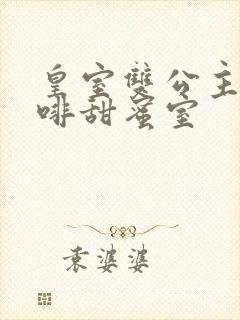 皇室雙公主
啡甜蜜室
袁婆婆